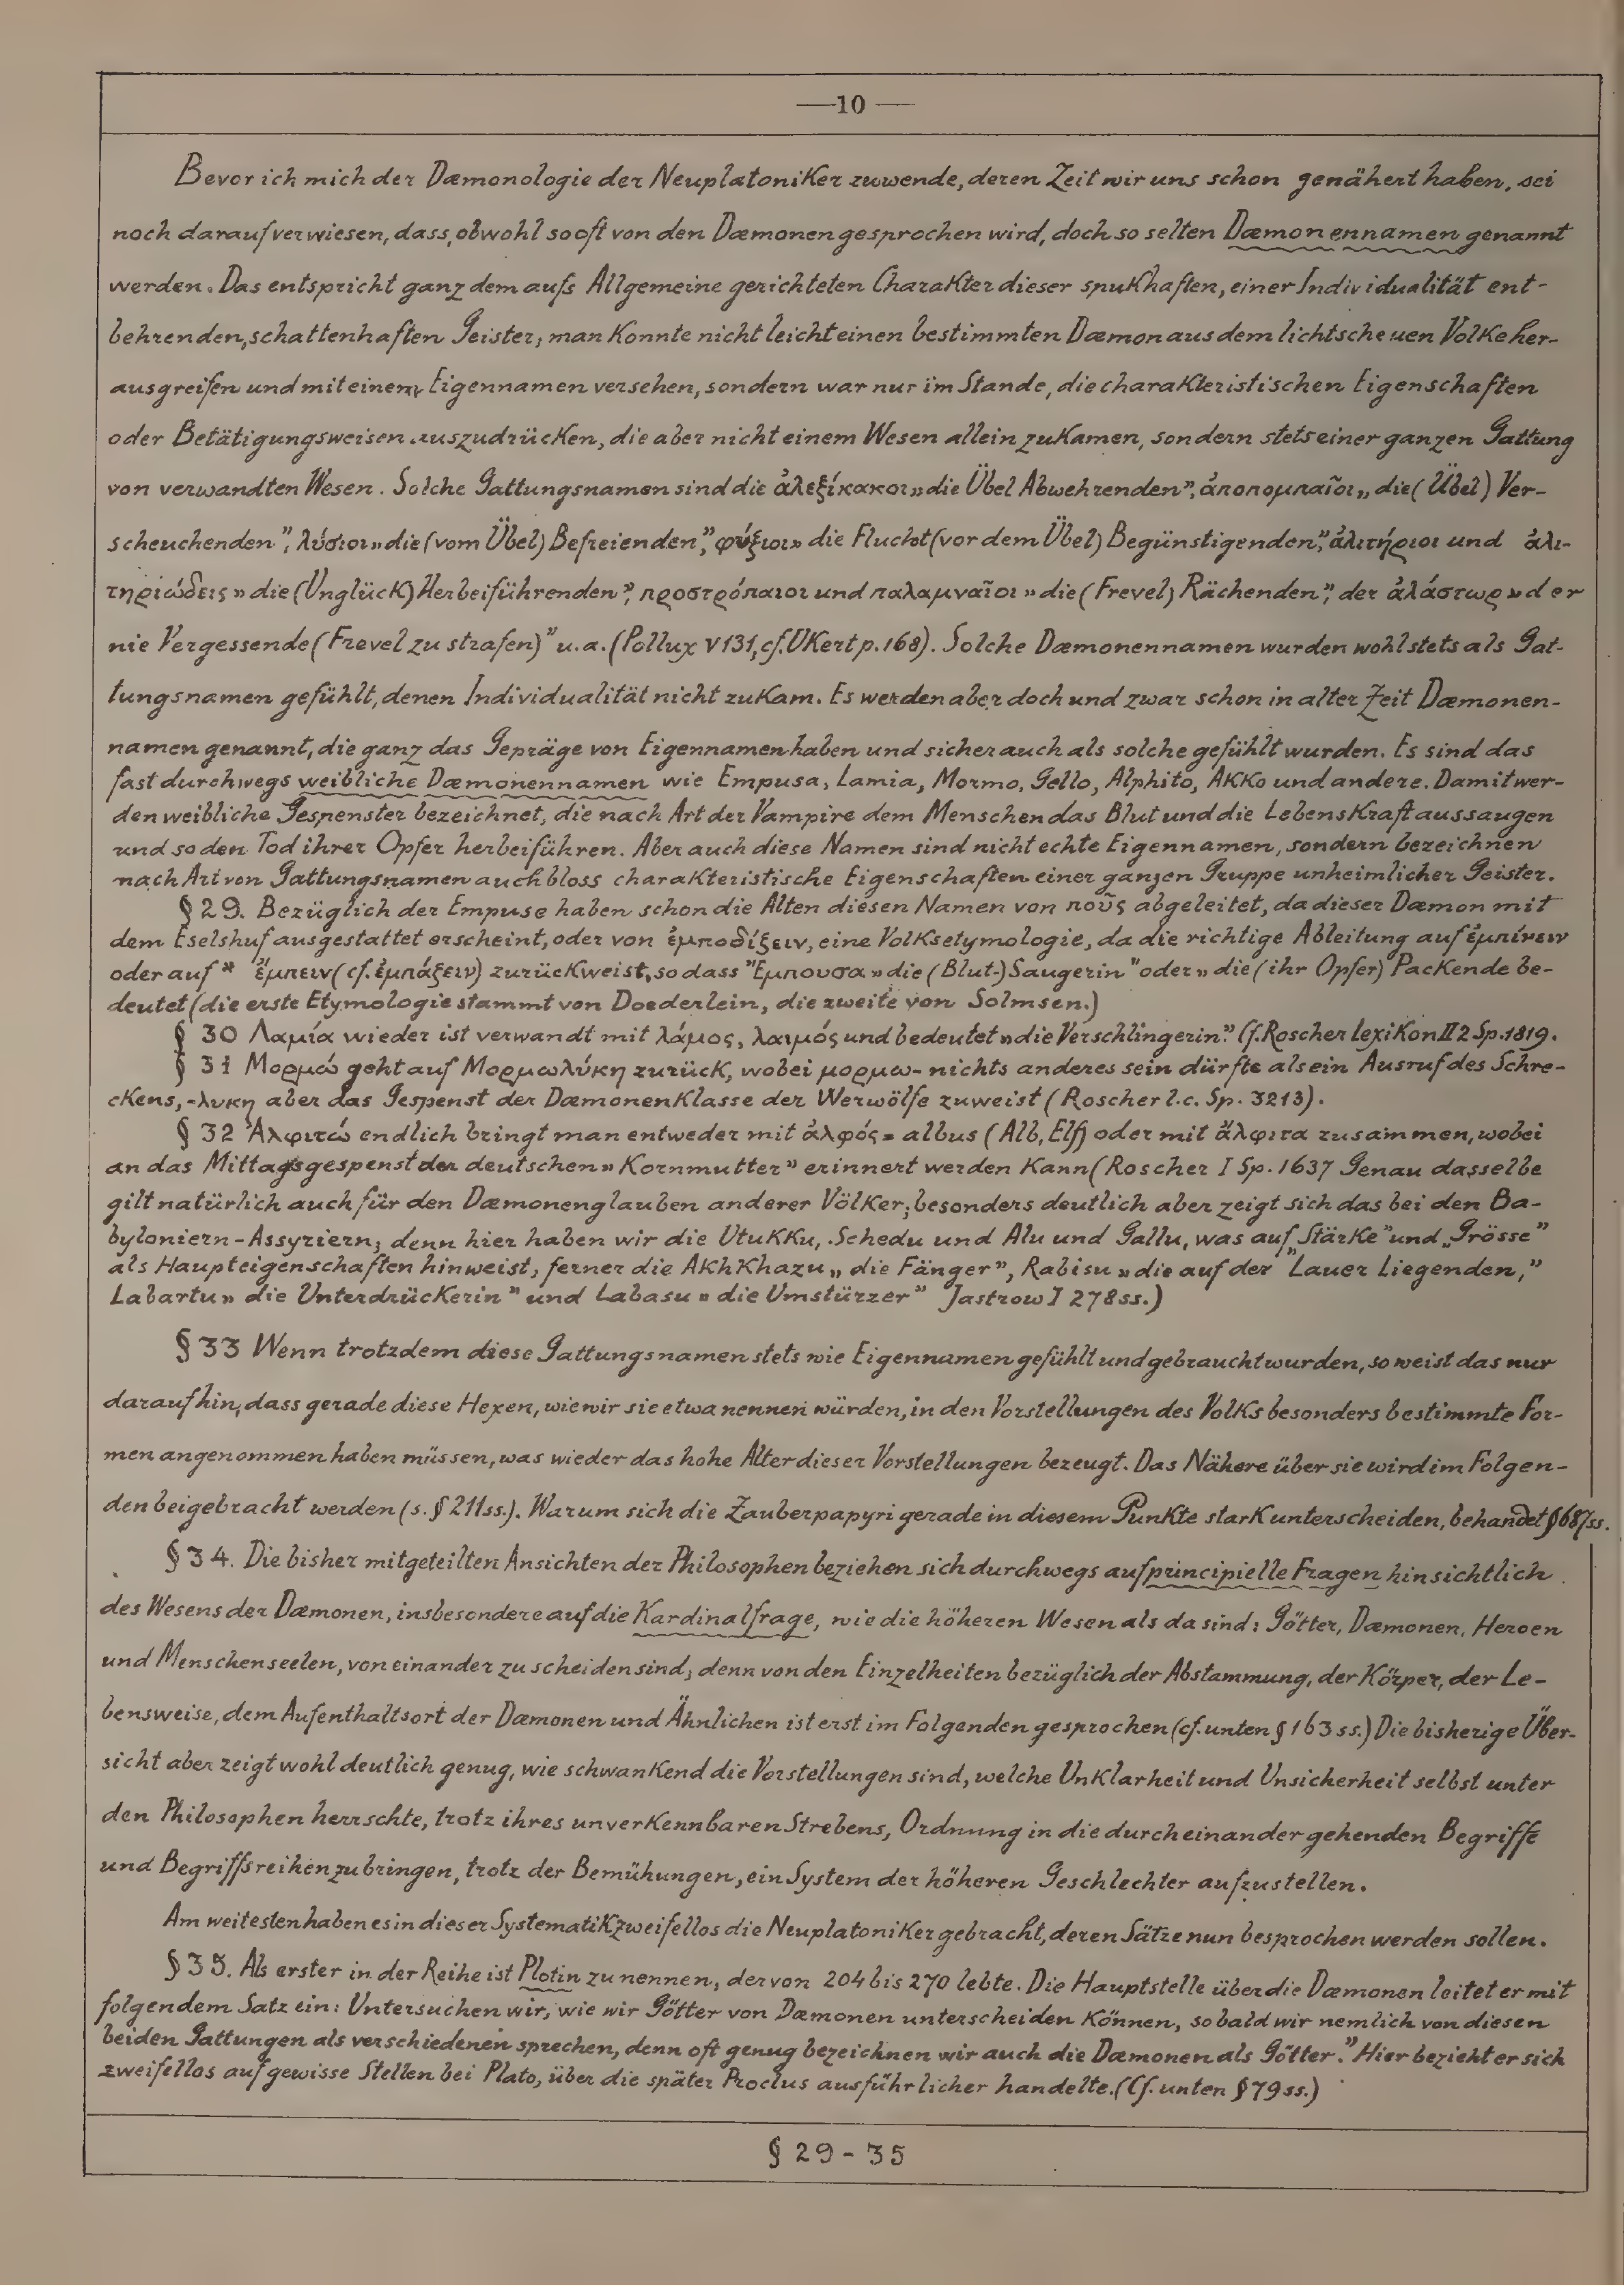 —10—
Bevor ich mich der Dæmonologie der Neuplatoniker zuwende, deren Zeit wir uns schon genähert haben, sei
noch darauf verwiesen, dass, obwohl so oft von den Dæmonen gesprochen wird, doch so selten Dæmonennamen genannt
werden. Das entspricht ganz dem aufs Allgemeine gerichteten Charakter dieser spukhaften, einer Individualität ent-
behrenden, schattenhaften Geister; man konnte nicht leicht einen bestimmten Dæmon aus dem lichtscheuen Volke her-
ausgreifen und mit einem Eigennamen versehen, sondern war nur im Stande, die charakteristischen Eigenschaften
oder Betätigungsweisen auszudrücken, die aber nicht einem Wesen allein zukamen, sondern stets einer ganzen Gattung
von verwandten Wesen. Solche Gattungsnamen sind die ἀλεξίκακοι „die Übel Abwehrenden", ἀποπομπαῖοι „die (Übel) Ver-
scheuchenden", λύσιοι „die (vom Übel) Befreienden", φύξιοι „die Flucht (vor dem Übel) Begünstigenden", ἀλιτήριοι und ἀλι-
τηριώδεις „die (Unglück) Herbeiführenden", προστρόπαιοι und παλαμναῖοι „die (Frevel) Rächenden", der ἀλάστωρ „der
nie Vergessende (Frevel zu strafen)" u. a. (Pollux V 131, cf. Ukert p. 168). Solche Dæmonennamen wurden wohl stets als Gat-
tungsnamen gefühlt, denen Individualität nicht zukam. Es werden aber doch und zwar schon in alter Zeit Dæmonen-
namen genannt, die ganz das Gepräge von Eigennamen haben und sicher auch als solche gefühlt wurden. Es sind das
fast durchwegs weibliche Dæmonennamen wie Empusa, Lamia, Mormo, Gello, Alphito, Akko und andere. Damit wer-
den weibliche Gespenster bezeichnet, die nach Art der Vampire dem Menschen das Blut und die Lebenskraft aussaugen
und so den Tod ihrer Opfer herbeiführen. Aber auch diese Namen sind nicht echte Eigennamen, sondern bezeichnen
nach Art von Gattungsnamen auch bloss charakteristische Eigenschaften einer ganzen Gruppe unheimlicher Geister.
§ 29. Bezüglich der Empuse haben schon die Alten diesen Namen von ποῦς abgeleitet, da dieser Dæmon mit
dem Eselshuf ausgestattet erscheint, oder von ἐμποδίζειν, eine Volksetymologie, da die richtige Ableitung auf ἐμπίνειν
oder auf * ἔμπειν (cf. ἐμπάζειν) zurückweist, so dass Ἔμπουσα „die (Blut-)Saugerin" oder „die (ihr Opfer) Packende be-
deutet (die erste Etymologie stammt von Doederlein, die zweite von Solmsen.)
§ 30 Λαμία wieder ist verwandt mit λάμος, λαιμός und bedeutet „die Verschlingerin". Cf. Roscher Lexikon II 2 Sp. 1819.
§ 31 Μορμώ geht auf Μορμωλύκη zurück, wobei μορμω- nichts anderes sein dürfte als ein Ausruf des Schre-
ckens, -λυκη aber das Gespenst der Dæmonenklasse der Werwölfe zuweist (Roscher l. c. Sp. 3213).
§ 32 Ἀλφιτώ endlich bringt man entweder mit ἀλφός = albus (Alb, Elf) oder mit ἄλφιτα zusammen, wobei
an das Mittagsgespenst der deutschen „Kornmutter" erinnert werden kann (Roscher I Sp. 1637 Genau dasselbe
gilt natürlich auch für den Dæmonenglauben anderer Völker; besonders deutlich aber zeigt sich das bei den Ba-
byloniern-Assyriern; denn hier haben wir die Utukku, Schedu und Alu und Gallu, was auf „Stärke" und „Grösse"
als Haupteigenschaften hinweist, ferner die Akhkhazu „die Fänger", Rabisu „die auf der Lauer Liegenden,"
Labartu „die Unterdrückerin" und Labasu „die Umstürzer" Jastrow I 278 ss.)
§ 33 Wenn trotzdem diese Gattungsnamen stets wie Eigennamen gefühlt und gebraucht wurden, so weist das nur
darauf hin, dass gerade diese Hexen, wie wir sie etwa nennen würden, in den Vorstellungen des Volks besonders bestimmte For-
men angenommen haben müssen, was wieder das hohe Alter dieser Vorstellungen bezeugt. Das Nähere über sie wird im Folgen-
den beigebracht werden (s. § 211 ss.). Warum sich die Zauberpapyri gerade in diesem Punkte stark unterscheiden, behandet § 687 ss.
§ 34. Die bisher mitgeteilten Ansichten der Philosophen beziehen sich durchwegs auf principielle Fragen hinsichtlich
des Wesens der Dæmonen, insbesondere auf die Kardinalfrage, wie die höheren Wesen als da sind: Götter, Dæmonen, Heroen
und Menschenseelen, von einander zu scheiden sind; denn von den Einzelheiten bezüglich der Abstammung, der Körper, der Le-
bensweise, dem Aufenthaltsort der Dæmonen und Ähnlichen ist erst im Folgenden gesprochen (cf. unten § 163 ss.) Die bisherige Über-
sicht aber zeigt wohl deutlich genug, wie schwankend die Vorstellungen sind, welche Unklarheit und Unsicherheit selbst unter
den Philosophen herrschte, trotz ihres unverkennbaren Strebens, Ordnung in die durcheinander gehenden Begriffe
und Begriffsreihen zu bringen, trotz der Bemühungen, ein System der höheren Geschlechter aufzustellen.
Am weitesten haben es in dieser Systematik zweifellos die Neuplatoniker gebracht, deren Sätze nun besprochen werden sollen.
§ 35. Als erster in der Reihe ist Plotin zu nennen, der von 204 bis 270 lebte. Die Hauptstelle über die Dæmonen leitet er mit
folgendem Satz ein: Untersuchen wir, wie wir Götter von Dæmonen unterscheiden können, sobald wir nemlich von diesen
beiden Gattungen als verschiedenen sprechen, denn oft genug bezeichnen wir auch die Dæmonen als Götter." Hier bezieht er sich
zweifellos auf gewisse Stellen bei Plato, über die später Proclus ausführlicher handelte. (Cf. unten § 79 ss.)
§ 29 - 35